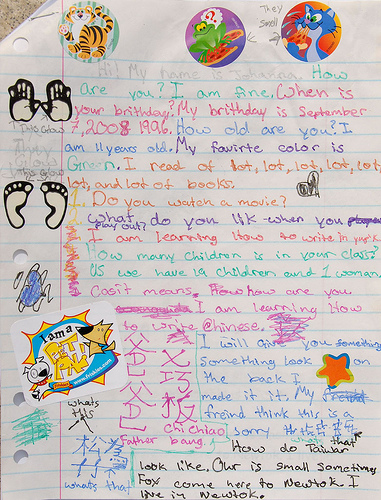 They
smell
Hi! My name is How
are you? I am fine. When is
your brithday? My brithday is September
7, 2008 1996. How old are you? I
am 11 years old. My favirte color is
Green. I read of lot, lot, lot, lot, lot,
lot, and lot of books.
Do you watch a movie?
what do you lik when you
play out?
I am learning How to write in
How many children is in your class?
US we have 19 children and 1 woman.
means. How how are you
I am learning How
to write Chinese.
This Glow
They
Glow
This Glow
I am a
www.friskies.com
I will give you something
Something look on
the back I
made it it. My
freind think this is a
sorry
what's that
whats
this
爸
爸
父
巧
板
chi chiao
Father bang
松
whats that
How do Taiwan
look like. Our is small sometimes
Fox come here to Newtok I
live in Newtok.